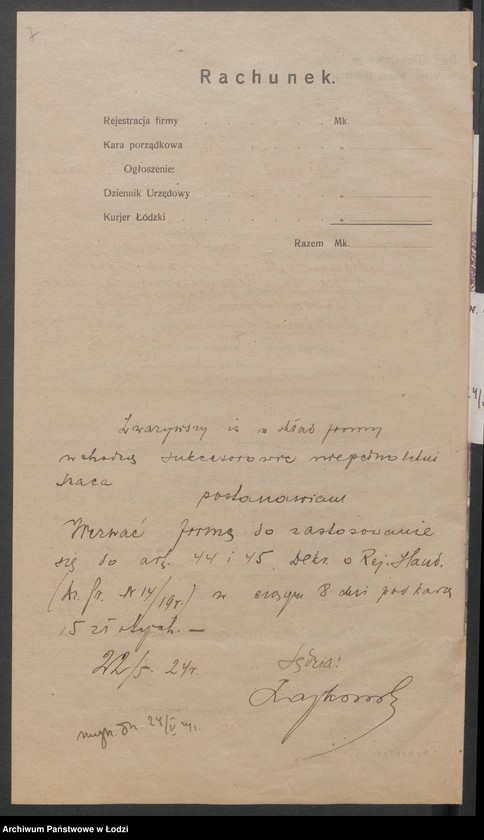 Rachunek.
Rejestracja firmy . . . . . . Mk
Kara porządkowa . . . . . . „
Ogłoszenie:
Dziennik Urzędowy . . . . . „
Kurjer Łódzki . . . . . . „
Razem Mk.
Zważywszy iż w skład firmy
wchodzą sukcesorowie niepełnoletni
postanawiam
Wezwać firmę do zastosowania
się do art. 44 i 45 Dekr. o Rej. Hand.
(Dz. Pr. N 14/19r.) w ciągu 8 dni pod karą
15 złotych. —
22/5. 24r. Sędzia:
wyk. dn. 24/V
Archiwum Państwowe w Łodzi